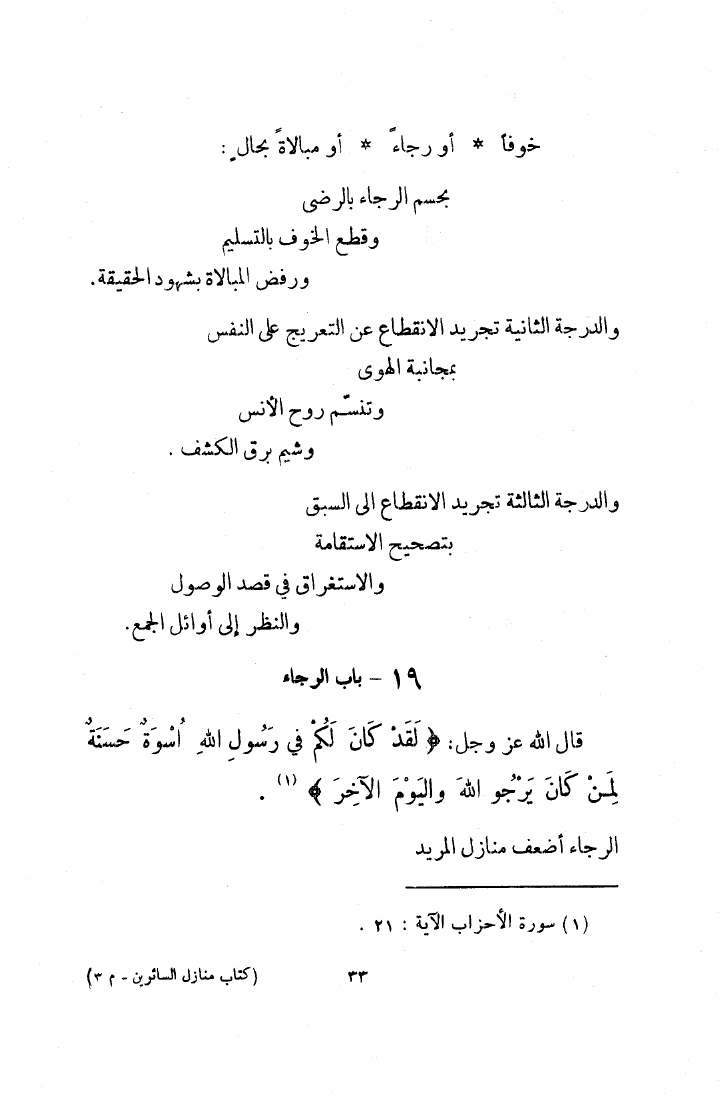 خوفاً * أو رجاءً * أو مبالاةً بحالٍ :
بحسم الرجاء بالرضى
وقطع الخوف بالتسليم
ورفض المبالاة بشهود الحقيقة.
والدرجة الثانية تجريد الانقطاع عن التعريج على النفس
بمجانبة الهوى
وتنسّم روح الأنس
وشيم برق الكشف .
والدرجة الثالثة تجريد الانقطاع الى السبق
بتصحيح الاستقامة
والاستغراق في قصد الوصول
والنظر إلى أوائل الجمع.
١٩ - باب الرجاء
قال الله عز وجل: ﴿ لَقَدْ كَانَ لَكُمْ في رَسُولِ اللهِ اُسْوَةٌ حَسَنَةٌ
لِمَنْ كَانَ يَرْجُو اللهَ واليَوْمَ الآخِرَ ﴾ (١) .
الرجاء أضعف منازل المريد
(١) سورة الأحزاب الآية : ٢١ .
٣٣
(كتاب منازل السائرين - م ٣)